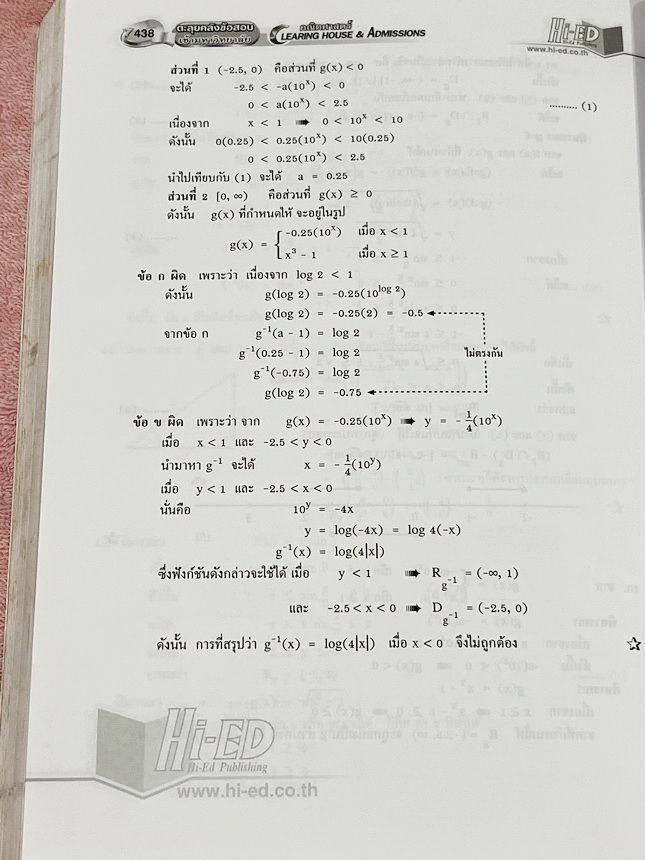 438 ตะลุยคลังข้อสอบ เข้ามหาวิทยาลัย
คณิตศาสตร์
CLEARING HOUSE & ADMISSIONS
Hi-ED
Hi-Ed Publishing
www.hi-ed.co.th
ส่วนที่ 1 (-2.5, 0) คือส่วนที่ g(x) < 0
จะได้ -2.5 < -a(10ˣ) < 0
0 < a(10ˣ) < 2.5 .......... (1)
เนื่องจาก x < 1 ➠ 0 < 10ˣ < 10
ดังนั้น 0(0.25) < 0.25(10ˣ) < 10(0.25)
0 < 0.25(10ˣ) < 2.5
นำไปเทียบกับ (1) จะได้ a = 0.25
ส่วนที่ 2 [0, ∞) คือส่วนที่ g(x) ≥ 0
ดังนั้น g(x) ที่กำหนดให้ จะอยู่ในรูป
g(x) = { -0.25(10ˣ) เมื่อ x < 1
x³ - 1 เมื่อ x ≥ 1
ข้อ ก ผิด เพราะว่า เนื่องจาก log 2 < 1
ดังนั้น g(log 2) = -0.25(10^(log 2))
g(log 2) = -0.25(2) = -0.5
จากข้อ ก g⁻¹(a - 1) = log 2
g⁻¹(0.25 - 1) = log 2 ไม่ตรงกัน
g⁻¹(-0.75) = log 2
g(log 2) = -0.75
ข้อ ข ผิด เพราะว่า จาก g(x) = -0.25(10ˣ) ➠ y = -1/4(10ˣ)
เมื่อ x < 1 และ -2.5 < y < 0
นำมาหา g⁻¹ จะได้ x = -1/4(10ʸ)
เมื่อ y < 1 และ -2.5 < x < 0
นั่นคือ 10ʸ = -4x
y = log(-4x) = log 4(-x)
g⁻¹(x) = log(4|x|)
ซึ่งฟังก์ชันดังกล่าวจะใช้ได้ เมื่อ y < 1 ➠ R g⁻¹ = (-∞, 1)
และ -2.5 < x < 0 ➠ D g⁻¹ = (-2.5, 0)
ดังนั้น การที่สรุปว่า g⁻¹(x) = log(4|x|) เมื่อ x < 0 จึงไม่ถูกต้อง ☆
Hi-ED
Hi-Ed Publishing
www.hi-ed.co.th